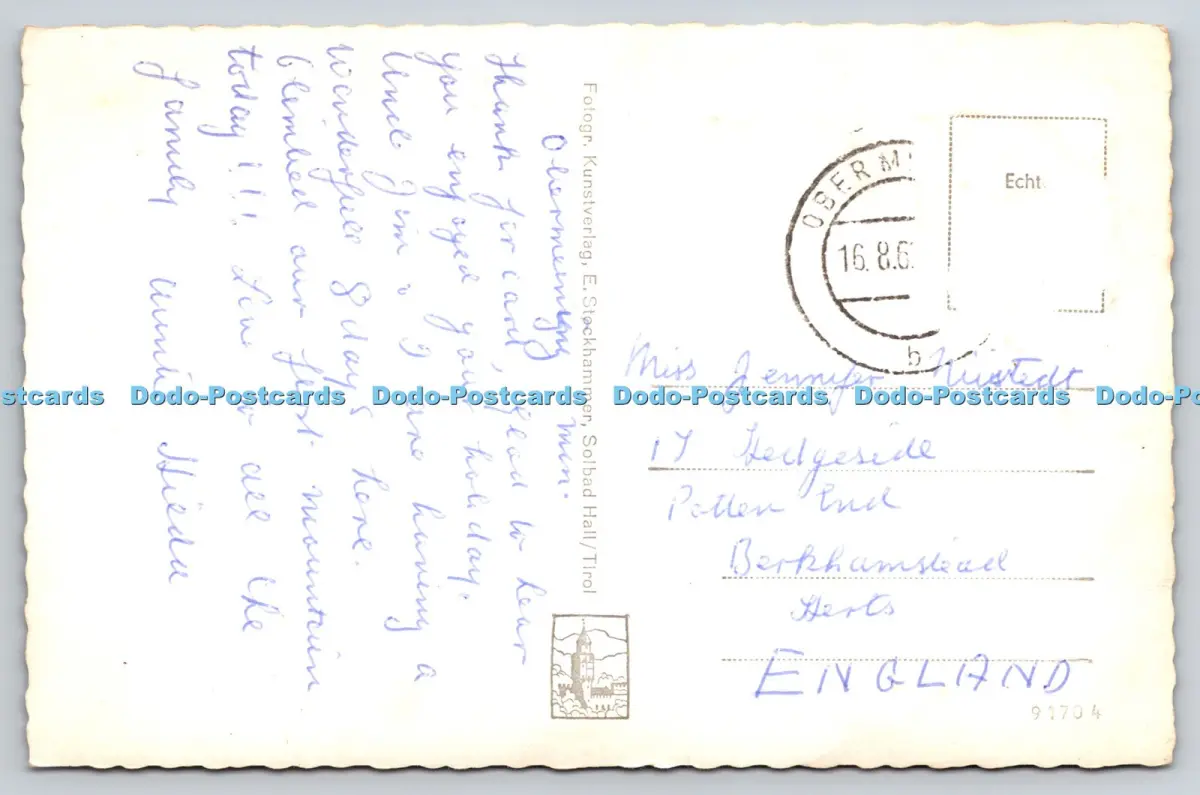 Obermieming Mon.
Thank for card, glad to hear
you enyoyed your holiday.
Uncle Jim & I are having a
wonderfull 8 days here.
Climbed our first mountain
today!!! Love to all the
family Auntie Hilda
Fotogr. Kunstverlag, E. Stockhammer, Solbad Hall/Tirol
OBERMI
16.8.6
b
Echt
Miss Jennifer
17 Hedgeside
Potten End
Berkhamstead
Herts
ENGLAND
91704
stcards Dodo-Postcards Dodo-Postcards Dodo-Postcards Dodo-Postcards Dodo-Pos